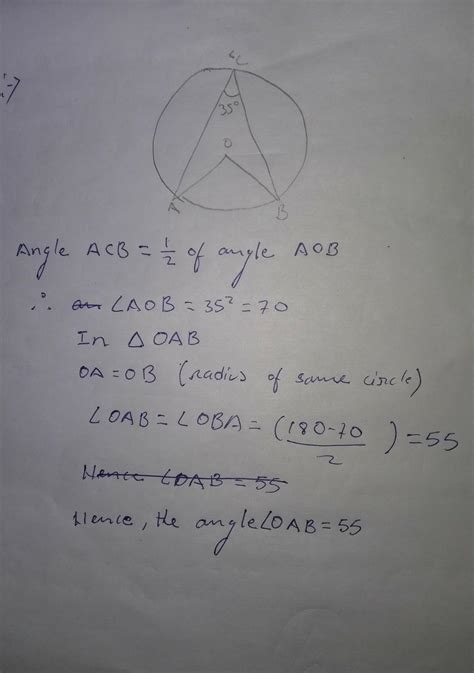 C
35°
O
A
B
Angle ACB = 1/2 of angle AOB
∴ ∠AOB = 35² = 70
In △ OAB
OA = OB (radius of same circle)
∠OAB = ∠OBA = (180-70/2) = 55
Hence ∠OAB = 55
Hence, the angle∠OAB = 55